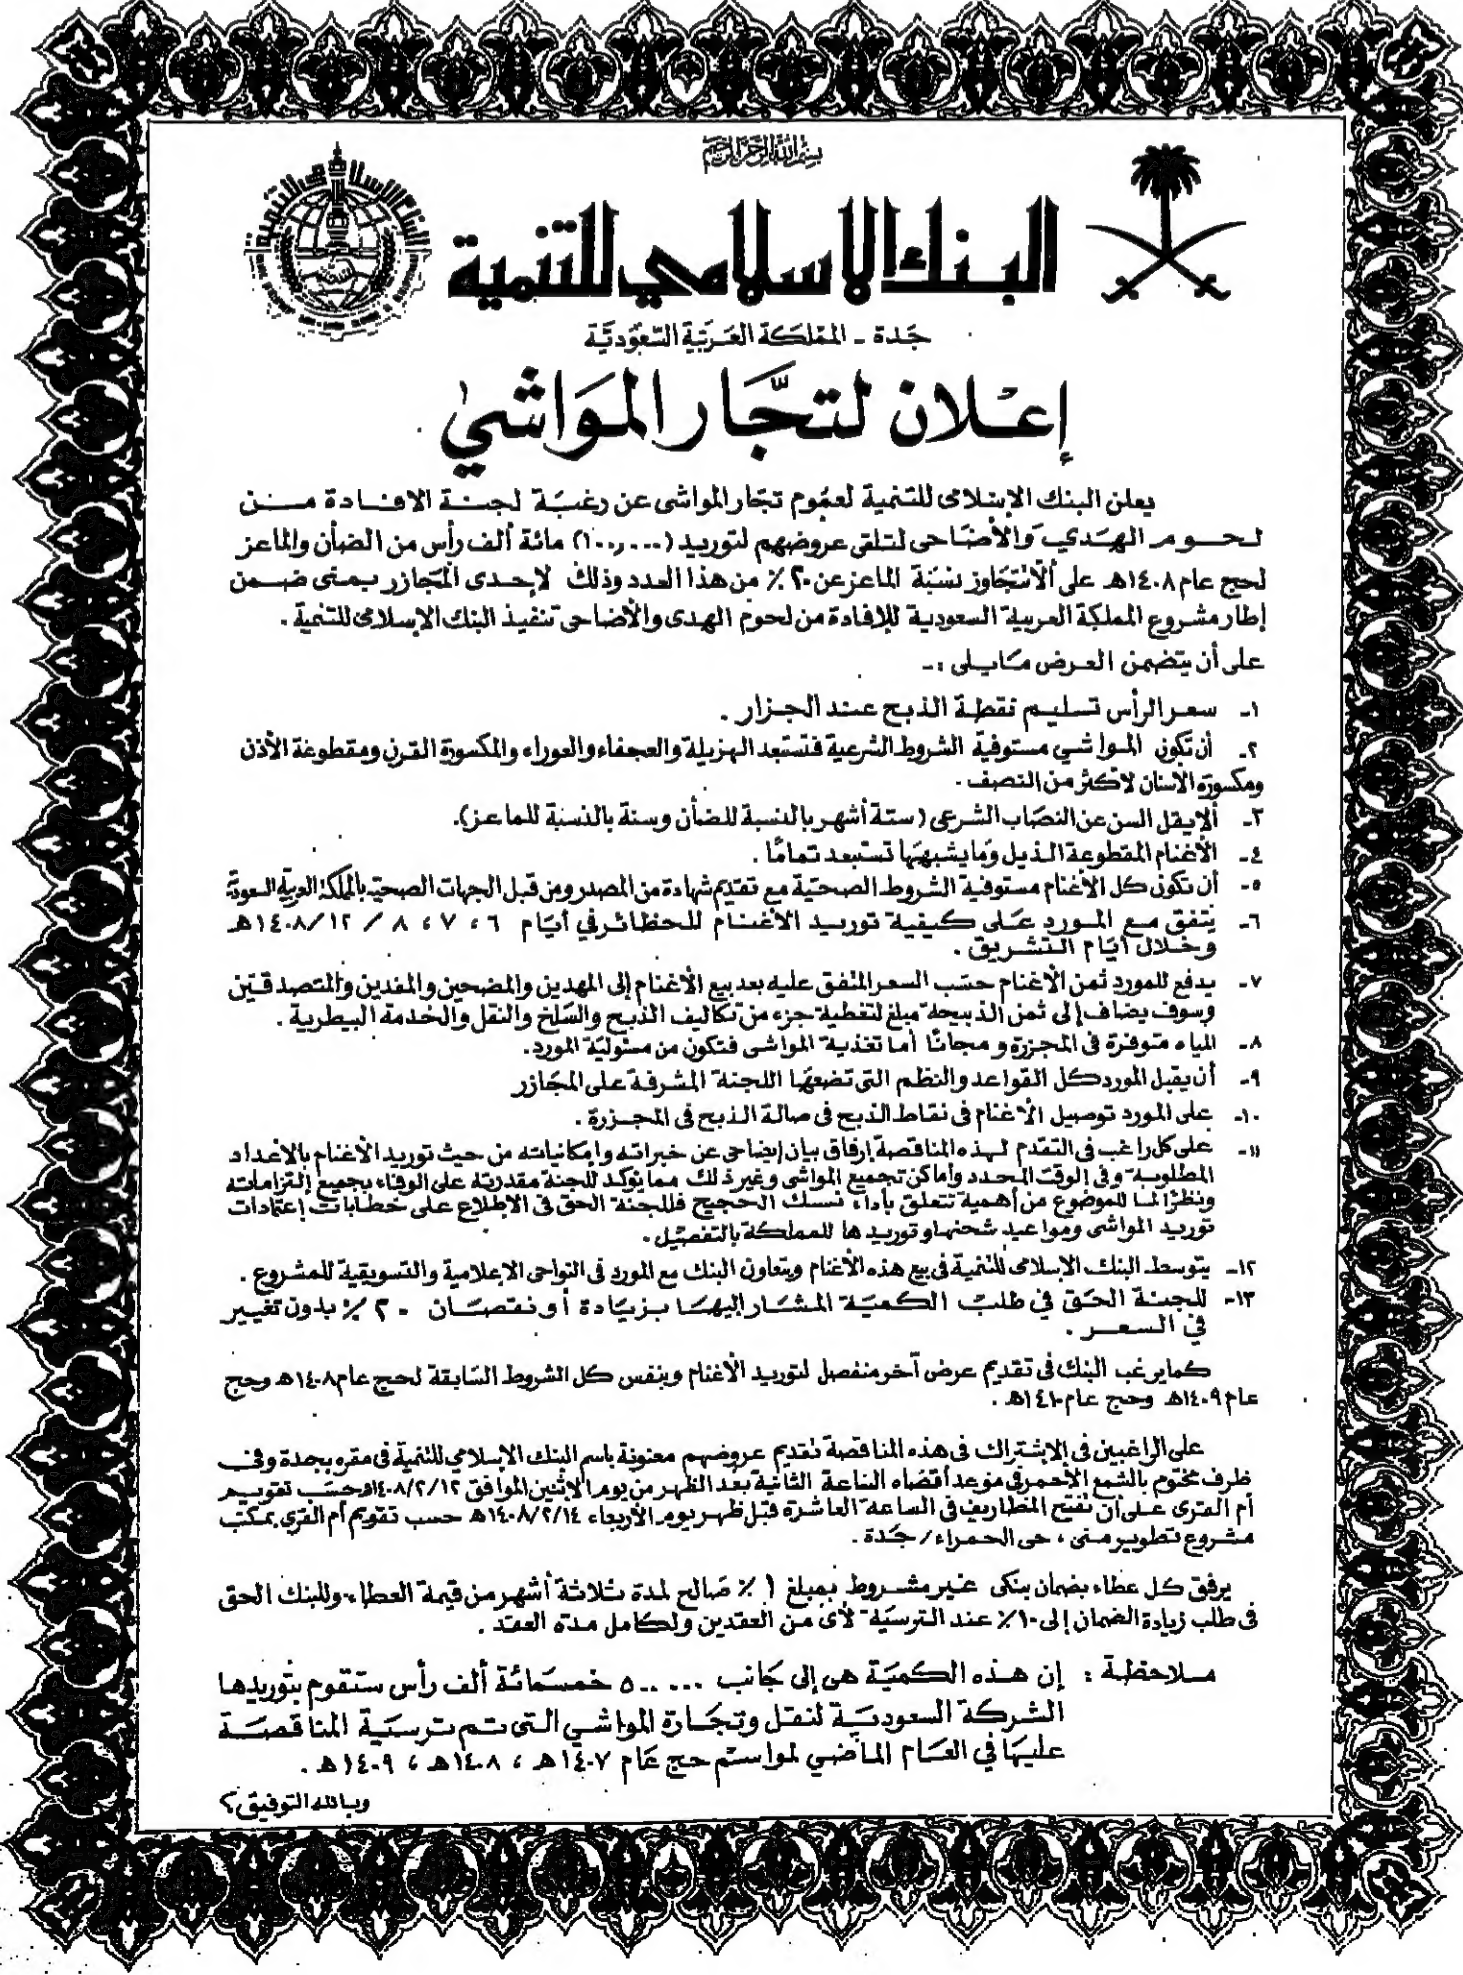 بسم الله الرحمن الرحيم
البنك الاسلامي للتنمية
جَدة - المملكة العربية السعودية
إعلان لتجّار المواشي
يعلن البنك الإسلامى للتنمية لعموم تجار المواشى عن رغبة لجنة الافادة من
لحوم الهدي والأضاحى لتلقى عروضهم لتوريد (١٠٠,٠٠٠) مائة ألف رأس من الضأن والماعز
لحج عام ١٤٠٨هـ على ألا تتجاوز نسبة الماعز عن ٢٠٪ من هذا العدد وذلك لإحدى المجازر بمنى ضمن
إطار مشروع المملكة العربية السعودية للإفادة من لحوم الهدى والأضاحى تنفيذ البنك الإسلامى للتنمية .
على أن يتضمن العرض مايلى :-
١- سعر الرأس تسليم نقطة الذبح عند الجزار .
٢- أن تكون المواشي مستوفية الشروط الشرعية فتستبعد الهزيلة والعجفاء والعوراء والمكسورة القرن ومقطوعة الأذن
ومكسورة الاسنان لأكثر من النصف .
٣- ألايقل السن عن النصاب الشرعى (ستة أشهر بالنسبة للضأن وسنة بالنسبة للماعز).
٤- الأغنام المقطوعة الذيل ومايشبهها تستبعد تمامًا .
٥- أن تكون كل الأغنام مستوفية الشروط الصحية مع تقديم شهادة من المصدر ومن قبل الجهات الصحية بالمملكة العربية السعودية
٦- يتفق مع المورد على كيفية توريد الأغنام للحظائر في أيام ٦ ، ٧ ، ٨ / ١٢ /١٤٠٨هـ
وخلال أيام التشريق .
٧- يدفع للمورد ثمن الأغنام حسب السعر المتفق عليه بعد بيع الأغنام إلى المهدين والمضحين والمفدين والمتصدقين
وسوف يضاف إلى ثمن الذبيحة مبلغ لتغطية جزء من تكاليف الذبح والسلخ والنقل والخدمة البيطرية .
٨- المياه متوفرة فى المجزرة و مجانًا أما تغذية المواشى فتكون من مسئولية المورد.
٩- أن يقبل المورد كل القواعد والنظم التى تضعها اللجنة المشرفة على المجازر
١٠- على المورد توصيل الأغنام فى نقاط الذبح فى صالة الذبح فى المجزرة .
١١- على كل راغب فى التقدم لهذه المناقصة إرفاق بيان إيضاحى عن خبراته وإمكانياته من حيث توريد الأغنام بالأعداد
المطلوبة وفى الوقت المحدد وأماكن تجميع المواشى وغير ذلك مما يؤكد للجنة مقدرته على الوفاء بجميع إلتزاماته
ونظرًا لما للموضوع من أهمية تتعلق بأداء نسك الحجيج فللجنة الحق فى الإطلاع على خطابات إعتمادات
توريد المواشى ومواعيد شحنها وتوريدها للمملكة بالتفصيل .
١٢- يتوسط البنك الإسلامى للتنمية فى بيع هذه الأغنام ويتعاون البنك مع المورد فى النواحى الإعلامية والتسويقية للمشروع .
١٣- للجنة الحق في طلب الكمية المشار إليها بزيادة أو نقصان ٢٠٪ بدون تغيير
في السعر .
كما يرغب البنك فى تقديم عرض آخر منفصل لتوريد الأغنام وبنفس كل الشروط السابقة لحج عام ١٤٠٨هـ وحج
عام ١٤٠٩هـ وحج عام ١٤١٠هـ .
على الراغبين فى الإشتراك فى هذه المناقصة تقديم عروضهم معنونة باسم البنك الإسلامي للتنمية فى مقره بجدة وفى
ظرف مختوم بالشمع الأحمر في موعد أقصاه الساعة الثانية بعد الظهر من يوم الإثنين الموافق ١٤٠٨/٢/١٢هـ حسب تقويم
أم القرى على أن تفتح المظاريف فى الساعة العاشرة قبل ظهر يوم الأربعاء ١٤٠٨/٢/١٤هـ حسب تقويم أم القرى بمكتب
مشروع تطوير منى ، حى الحمراء / جدة .
يرفق كل عطاء بضمان بنكى غير مشروط بمبلغ ١٪ صالح لمدة ثلاثة أشهر من قيمة العطاء وللبنك الحق
فى طلب زيادة الضمان إلى ١٠٪ عند الترسية لأى من العقدين ولكامل مدة العقد .
ملاحظة : إن هذه الكمية هى إلى جانب ٥٠٠٠٠٠ خمسمائة ألف رأس ستقوم بتوريدها
الشركة السعودية لنقل وتجارة المواشي التى تم ترسية المناقصة
عليها في العام الماضي لمواسم حج عام ١٤٠٧هـ ، ١٤٠٨هـ ، ١٤٠٩هـ .
وبالله التوفيق ؟